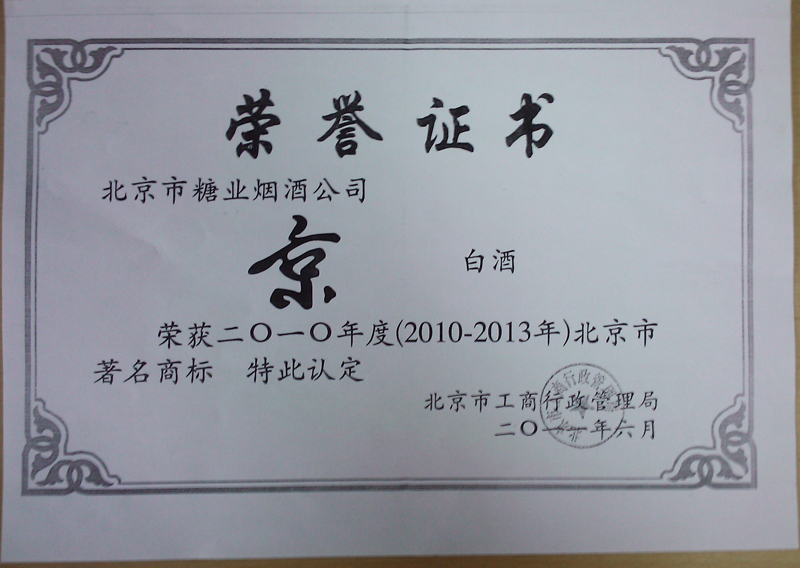 荣誉证书
北京市糖业烟酒公司
京 白酒
荣获二〇一〇年度(2010-2013年)北京市
著名商标 特此认定
北京市工商行政管理局
二〇一一年六月